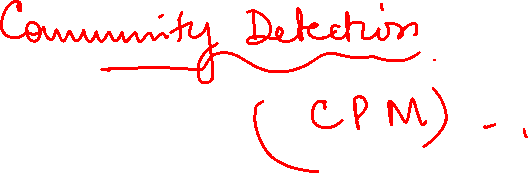 Community Detection
(CPM) -.